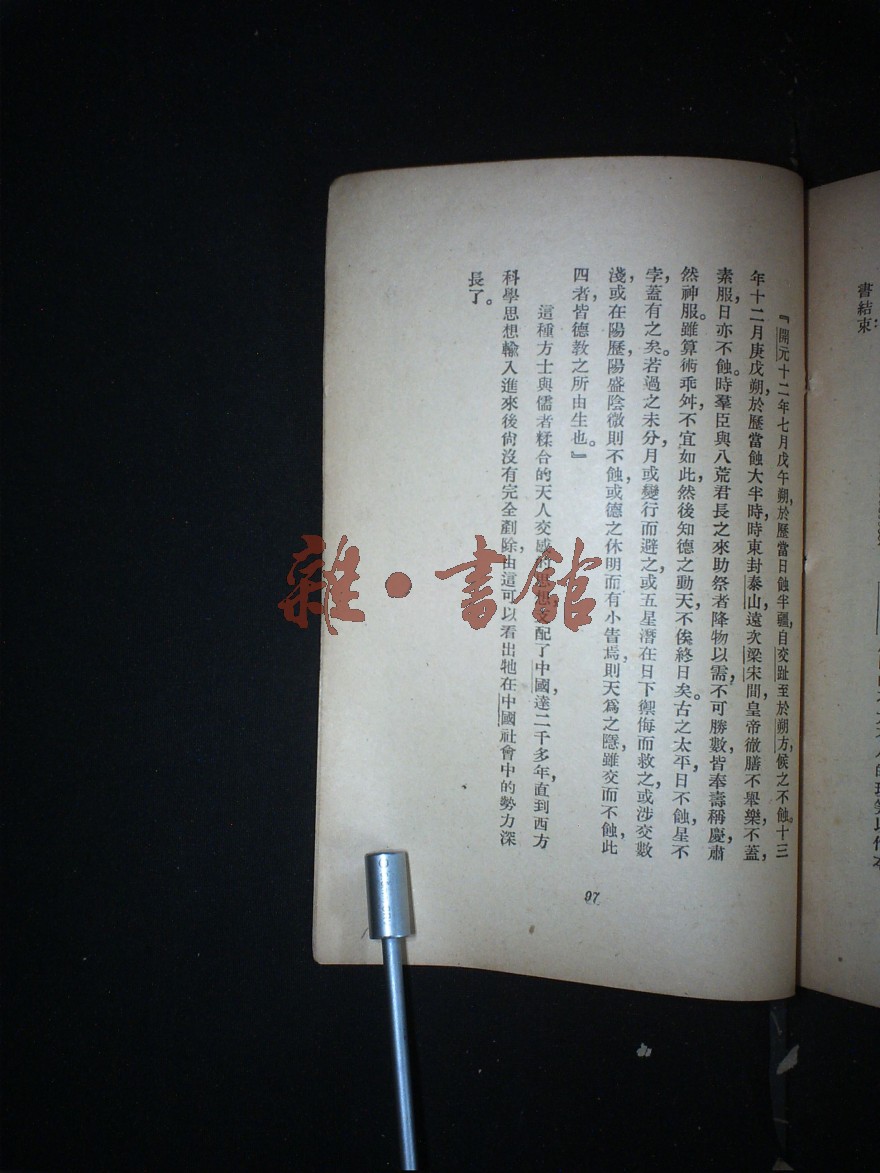 書結束
『開元十二年七月戊午朔，於歷當日蝕半疆，自交趾至於朔方，候之不蝕。十三
年十二月庚戌朔，於歷當蝕大半時，時東封泰山，遠次梁宋間，皇帝徹膳不舉樂，不蓋，
素服，日亦不蝕。時羣臣與八荒君長之來助祭者，降物以需，不可勝數，皆奉壽稱慶，肅
然神服。雖算術乖舛，不宜如此，然後知德之動天，不俟終日矣。古之太平，日不蝕，星不
孛，蓋有之矣。若過之未分，月或變行而避之，或五星潛在日下，禦侮而救之，或涉交數
淺，或在陽歷，陽盛陰微則不蝕，或德之休明，而有小眚焉，則天爲之隱，雖交而不蝕，此
四者，皆德敎之所由生也。』
這種方士與儒者糅台的天人交感的思想，支配了中國，達二千多年，直到西方
科學思想輸入進來後，尙沒有完全剷除，由這可以看出牠在中國社會中的勢力深
長了。
97
雜·書館